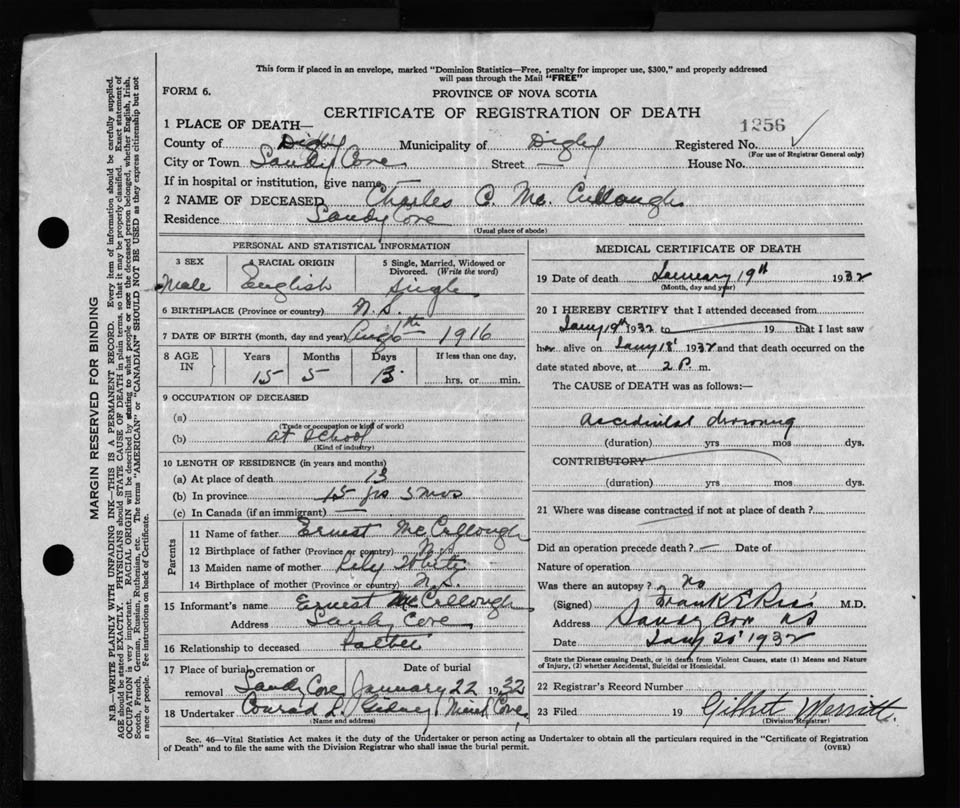 This form if placed in an envelope, marked "Dominion Statistics—Free, penalty for improper use, $300," and properly addressed
will pass through the Mail "FREE"
FORM 6.
PROVINCE OF NOVA SCOTIA
CERTIFICATE OF REGISTRATION OF DEATH
1256
1 PLACE OF DEATH—
County of Digby Municipality of Digby Registered No.
(For use of Registrar General only)
City or Town Sandy Cove Street — House No.
If in hospital or institution, give name —
2 NAME OF DECEASED Charles C. McCullough
Residence Sandy Cove
(Usual place of abode)
PERSONAL AND STATISTICAL INFORMATION
3 SEX
Male
4 RACIAL ORIGIN
English
5 Single, Married, Widowed or
Divorced. (Write the word)
Single
6 BIRTHPLACE (Province or country) N.S.
7 DATE OF BIRTH (month, day and year) Aug 6th 1916
8 AGE
IN
Years Months Days If less than one day,
15 5 13 hrs. or min.
9 OCCUPATION OF DECEASED
(a)
(Trade or occupation or kind of work)
(b) at school
(Kind of industry)
10 LENGTH OF RESIDENCE (in years and months)
(a) At place of death 13
(b) In province 15 yrs 5 mos
(c) In Canada (if an immigrant) —
Parents
11 Name of father Ernest McCullough
12 Birthplace of father (Province or country) N.S.
13 Maiden name of mother White
14 Birthplace of mother (Province or country) N.S.
15 Informant's name Ernest McCullough
Address Sandy Cove
16 Relationship to deceased Father
17 Place of burial, cremation or Date of burial
removal Sandy Cove January 22 1932
18 Undertaker Conrad L. Gidney Mink Cove
(Name and address)
MEDICAL CERTIFICATE OF DEATH
19 Date of death January 19th 1932
(Month, day and year)
20 I HEREBY CERTIFY that I attended deceased from
Jany 19th 1932 to 19 that I last saw
h alive on Jany 18 1932 and that death occurred on the
date stated above, at 2 P. m.
The CAUSE OF DEATH was as follows:—
accidental drowning
(duration) yrs mos dys.
CONTRIBUTORY
(duration) yrs mos dys.
21 Where was disease contracted if not at place of death?
Did an operation precede death? — Date of
Nature of operation
Was there an autopsy? no
(Signed) Frank E Rice M.D.
Address Sandy Cove NS
Date Jany 20 1932
State the Disease causing Death, or in death from Violent Causes, state (1) Means and Nature
of Injury, (2) whether Accidental, Suicidal or Homicidal.
22 Registrar's Record Number
23 Filed 19 Gilbert Merritt.
(Division Registrar)
Sec. 46—Vital Statistics Act makes it the duty of the Undertaker or person acting as Undertaker to obtain all the particulars required in the "Certificate of Registration
of Death" and to file the same with the Division Registrar who shall issue the burial permit.
(OVER)
MARGIN RESERVED FOR BINDING
N.B.—WRITE PLAINLY WITH UNFADING INK—THIS IS A PERMANENT RECORD. Every item of information should be carefully supplied.
AGE should be stated EXACTLY. PHYSICIANS should STATE CAUSE OF DEATH in plain terms, so that it may be properly classified. Exact statement of
OCCUPATION is very important. RACIAL ORIGIN will be described by stating to what people, race the deceased person belonged, whether English, Irish,
Scotch, French, German, Russian, Ruthenian, etc. The terms "AMERICAN" or "CANADIAN" SHOULD NOT BE USED as they express citizenship but not
a race or people. Fee instructions on back of Certificate.